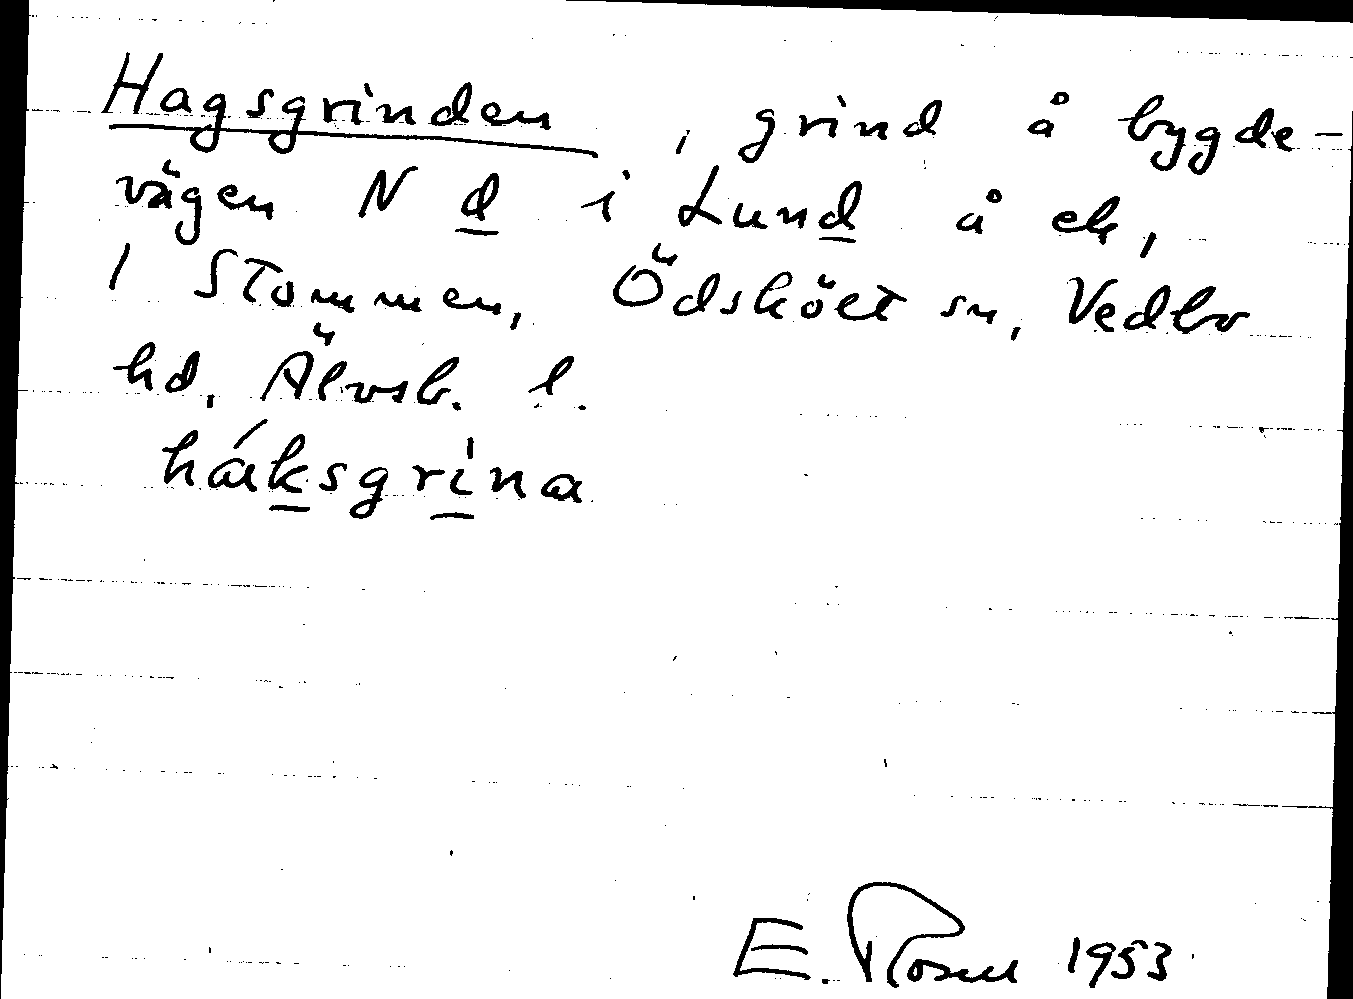 Hagsgrinden, grind å bygde-
vägen N d i Lund å ek,
1 Stommen, Ödskölt sn, Vedbo
hd, Älvsb. l.
háksgrina
E. Rosell 1953